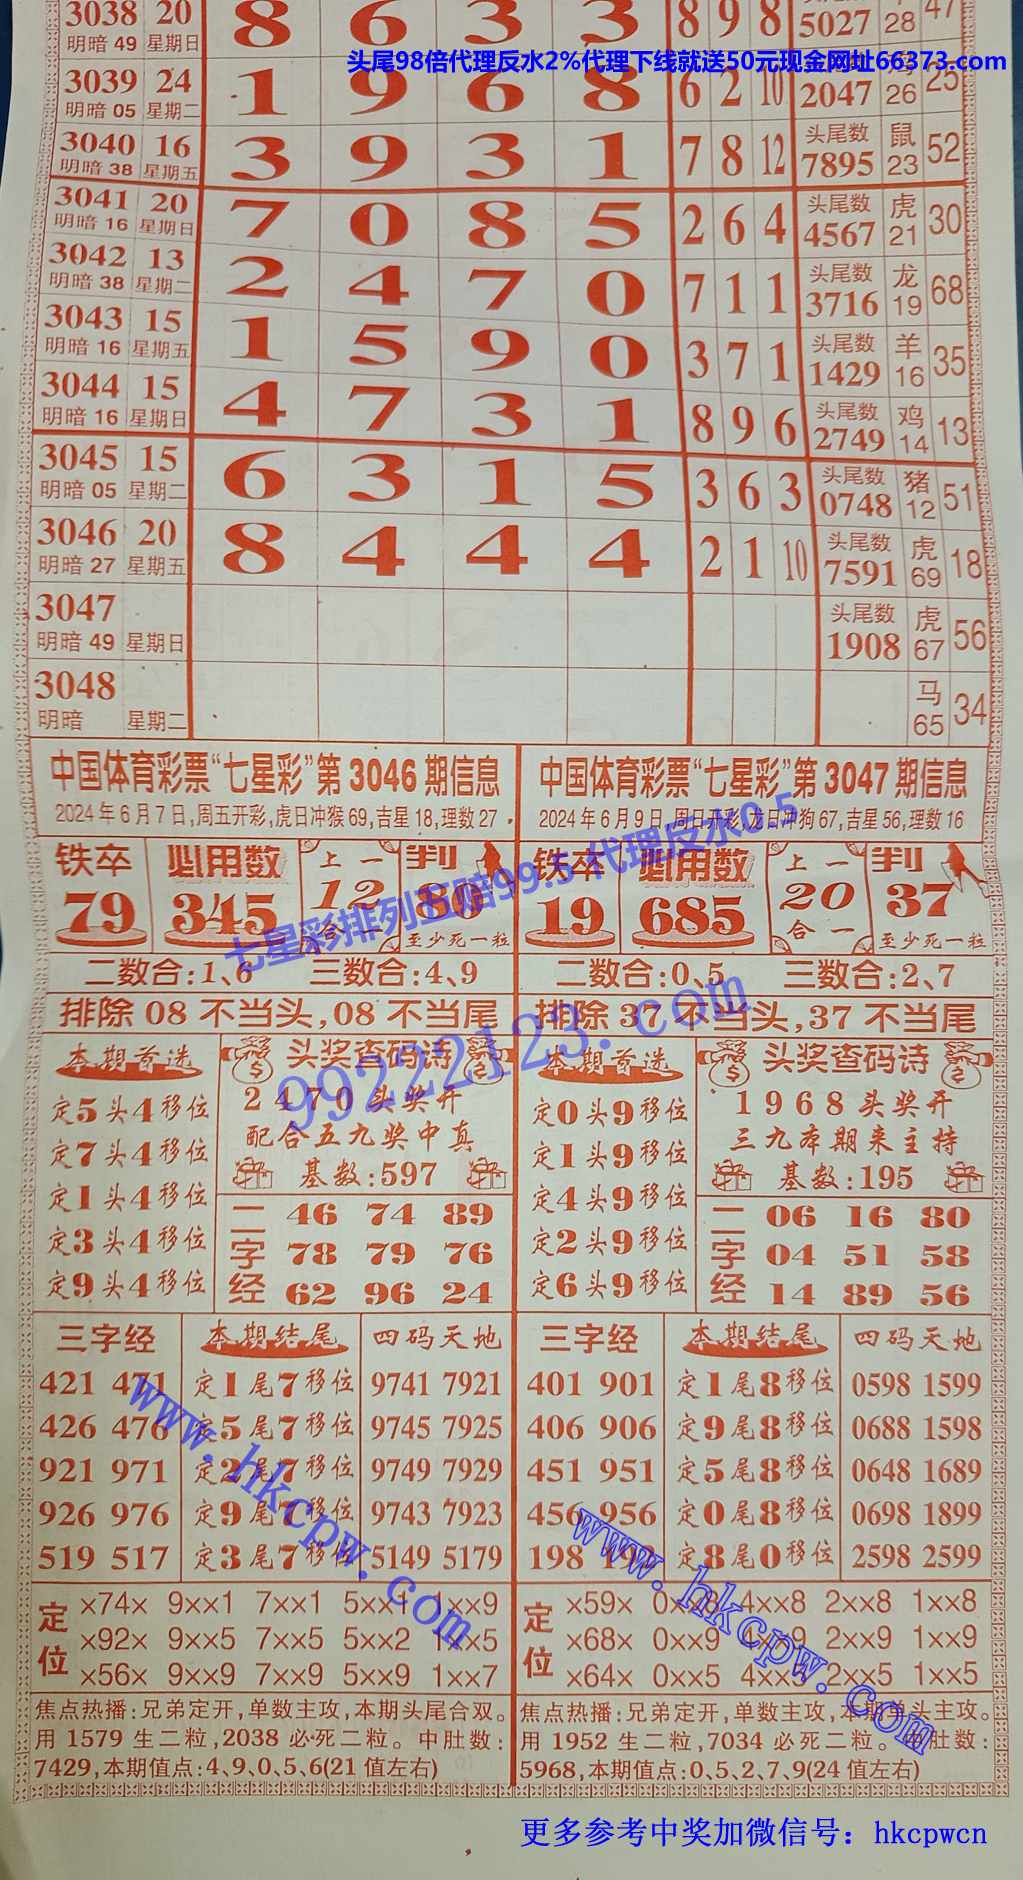 3038 20 8 6 3 3 8 9 8 5027 28 47
明暗 49 星期日
头尾98倍代理反水2%代理下线就送50元现金网址66373.com
3039 24 1 9 6 8 6 2 10 2047 26 25
明暗 05 星期二
3040 16 3 9 3 1 7 8 12 头尾数 7895 鼠 23 52
明暗 38 星期五
3041 20 7 0 8 5 2 6 4 头尾数 4567 虎 21 30
明暗 16 星期日
3042 13 2 4 7 0 7 1 1 头尾数 3716 龙 19 68
明暗 38 星期二
3043 15 1 5 9 0 3 7 1 头尾数 1429 羊 16 35
明暗 16 星期五
3044 15 4 7 3 1 8 9 6 头尾数 2749 鸡 14 13
明暗 16 星期日
3045 15 6 3 1 5 3 6 3 头尾数 0748 猪 12 51
明暗 05 星期二
3046 20 8 4 4 4 2 1 10 头尾数 7591 虎 69 18
明暗 27 星期五
3047 头尾数 1908 虎 67 56
明暗 49 星期日
3048 马 65 34
明暗 星期二
中国体育彩票“七星彩”第 3046 期信息
2024年6月7日,周五开彩,虎日冲猴69,吉星18,理数27
铁卒 79 必用数 345 上一 12 合一 利 80 至少死一粒
二数合:1、6 三数合:4、9
排除 08 不当头,08 不当尾
本期首选
定5头4移位
定7头4移位
定1头4移位
定3头4移位
定9头4移位
头奖查码诗
2470头奖开
配合五九奖中真
基数:597
二字经
46 74 89
78 79 76
62 96 24
三字经
421 471
426 476
921 971
926 976
519 517
本期结尾
定1尾7移位
定5尾7移位
定2尾7移位
定9尾7移位
定3尾7移位
四码天地
9741 7921
9745 7925
9749 7929
9743 7923
5149 5179
定位
×74× 9××1 7××1 5××1 1××9
×92× 9××5 7××5 5××2 1××5
×56× 9××9 7××9 5××9 1××7
焦点热播:兄弟定开,单数主攻,本期头尾合双。
用 1579 生二粒,2038 必死二粒。中肚数:
7429,本期值点:4、9、0、5、6(21 值左右)
中国体育彩票“七星彩”第 3047 期信息
2024年6月9日,周日开彩,龙日冲狗67,吉星56,理数16
铁卒 19 必用数 685 上一 20 合一 利 37 至少死一粒
二数合:0、5 三数合:2、7
排除 37 不当头,37 不当尾
本期首选
定0头9移位
定1头9移位
定4头9移位
定2头9移位
定6头9移位
头奖查码诗
1968头奖开
三九本期来主持
基数:195
二字经
06 16 80
04 51 58
14 89 56
三字经
401 901
406 906
451 951
456 956
198
本期结尾
定1尾8移位
定9尾8移位
定5尾8移位
定0尾8移位
定8尾0移位
四码天地
0598 1599
0688 1598
0648 1689
0698 1899
2598 2599
定位
×59× 0××8 4××8 2××8 1××8
×68× 0××9 4××9 2××9 1××9
×64× 0××5 4××5 2××5 1××5
焦点热播:兄弟定开,单数主攻,本期单头主攻。
用 1952 生二粒,7034 必死二粒。中肚数:
5968,本期值点:0、5、2、7、9(24 值左右)
七星彩排列五赔99.5 代理反水0.5
99222123.com
www.hkcpw.com
www.hkcpw.com
更多参考中奖加微信号：hkcpwcn